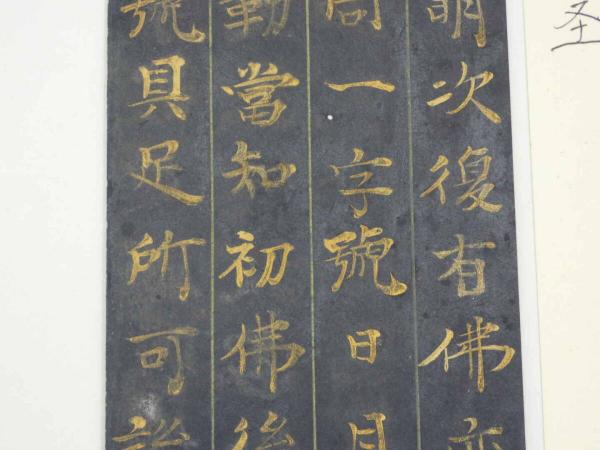 明次復有佛亦
同一字號日月
勒當知初佛後
號具足所可說
圣